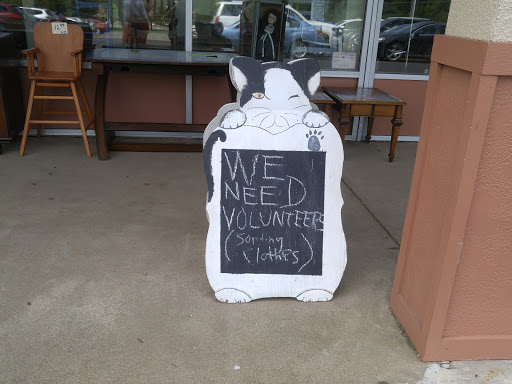 WE
NEED
VOLUNTEERS
(Sorting
Clothes)